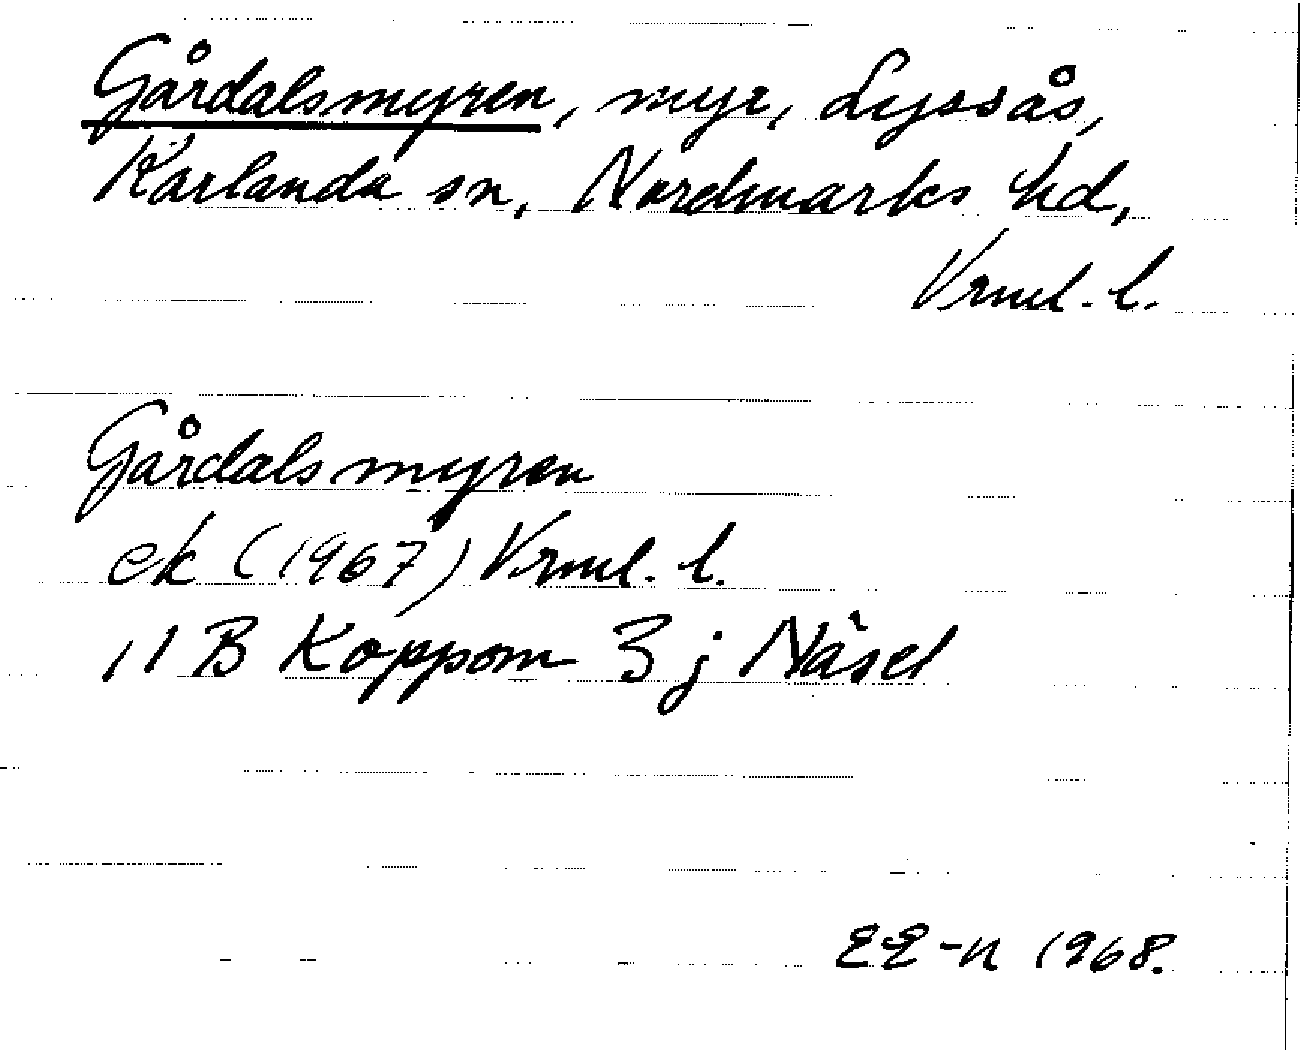 Gårdalsmyren, myr, Lyssås,
Karlanda sn, Nordmarks hd,
Vrml. l.
Gårdalsmyren
ek (1967) Vrml. l.
11 B Koppom 3 j Näset
EE-n 1968.